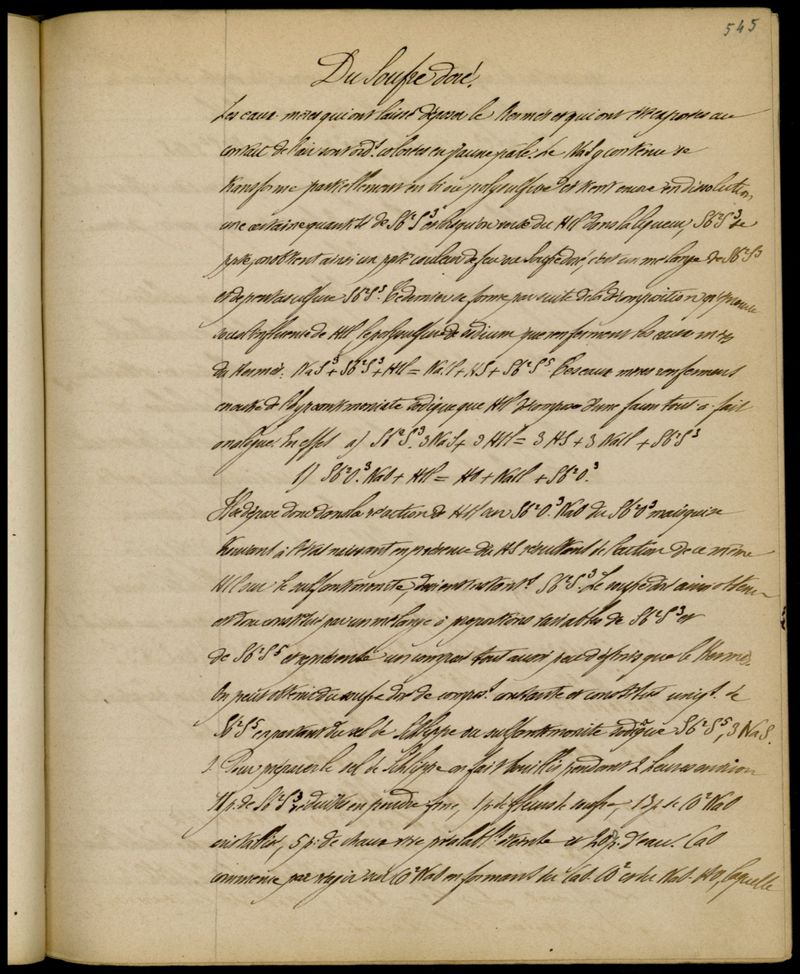 545
Du Soufre doré.
Les eaux mères qui ont laissé déposer le Kermès et qui ont été exposées au
contact de l'air sont ordt colorées en jaune pâle. Le NaS q contenu se
transforme partiellement en bi ou polysulfure et tient encore en dissolution
une certaine quantité de Sb²S³ et lorsqu'on verse du HCl dans la liqueur Sb²S³ se
ppte, on obtient ainsi un ppté couleur de feu ou Soufre doré, c'est un mélange de Sb²S³
et de pentasulfure Sb²S⁵. Ce dernier se forme par suite de la décomposition q' éprouve
sous l'influence de HCl le polysulfure de sodium que renferment les eaux mères
du Kermès: NaS³ + Sb²S³ + HCl = NaCl + HS + Sb²S⁵. Ces eaux mères renferment
en outre de l' antimoniate sodique que HCl décompose d'une façon tout-à-fait
analogue. En effet a) Sb²S³. 3NaS + 3HCl = 3HS + 3NaCl + Sb²S³
Sb²O³. NaO + HCl = HO + NaCl + Sb²O³
Il se dépose donc dans la réaction de HCl sur Sb²O³ NaO du Sb²O³ mais qui se
trouvant à l'état naissant en présence de HS résultant de l'action de ce même
HCl sur le sulfantimonite, devient instantt Sb²S³. Le soufre doré ainsi obtenu
est donc constitué par un mélange à proportions variables de Sb²S³ et
de Sb²S⁵ et représente un composé tout aussi peu défini que le Kermès
On peut obtenir du soufre doré de composon constante et constitué uniqt de
Sb²S⁵ en partant du sel de Schlippe ou sulfantimoniate sodique Sb²S⁵, 3NaS.
Pour préparer le sel de Schlippe on fait bouillir pendant 2 heures environ
11 p. de Sb²S³ réduites en poudre fine, 1 p. de fleurs de soufre, 13 p. de CO²NaO
cristallisé, 5 p. de chaux vive préalablt éteinte et 20 p. d'eau. CaO
commence par réagir sur CO²NaO en formant du CaO.CO² et du NaO.HO, laquelle